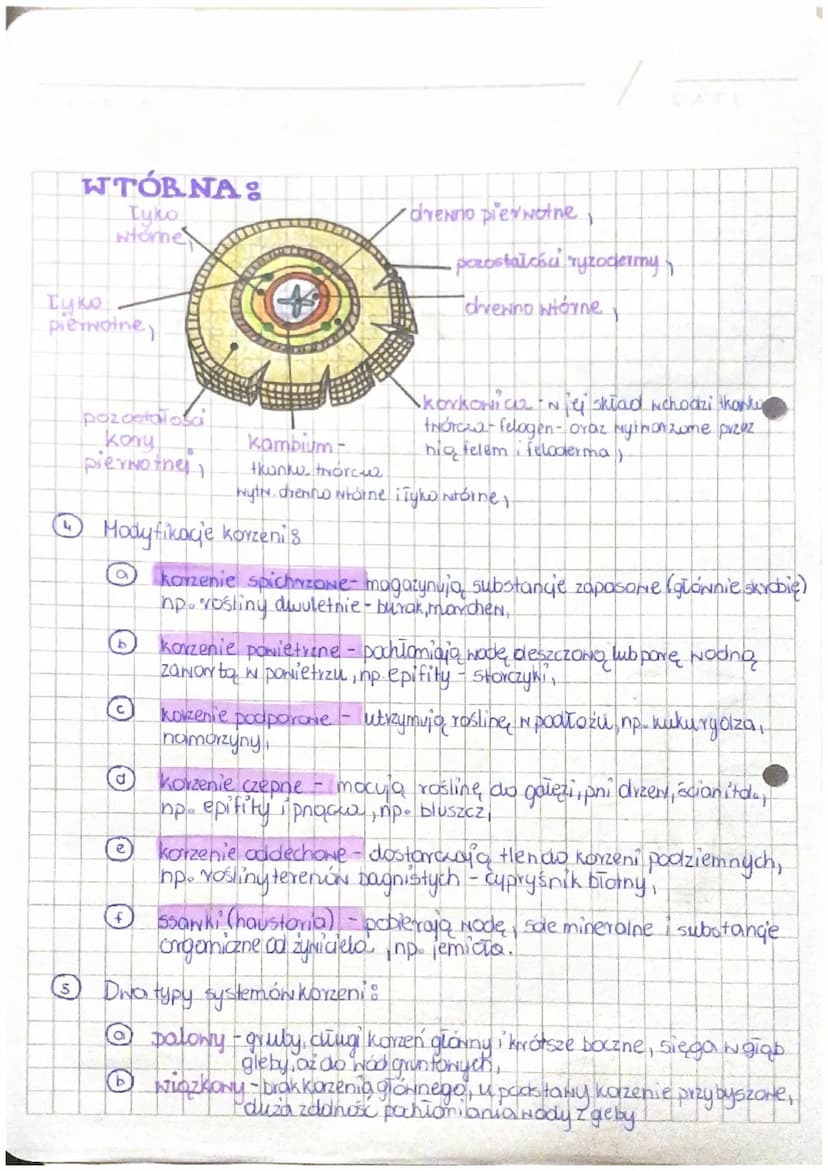 DATE
WTÓRNA:
łyko
wtórne,
drewno pierwotne,
pozostałości ryzodermy,
łyko
pierwotne,
drewno wtórne,
pozostałości
kory
pierwotnej,
kambium -
tkanka twórcza
wytw. drewno wtórne i łyko wtórne,
korkowica - w jej skład wchodzi tkanka
twórcza - felogen - oraz wytworzone przez
nią felem i feloderma,
4 Modyfikacje korzeni:
a korzenie spichrzowe - magazynują substancje zapasowe (głównie skrobię)
np. rośliny dwuletnie - burak, marchew,
b korzenie powietrzne - pochłaniają wodę deszczową lub parę wodną
zawartą w powietrzu, np. epifity - storczyki,
c korzenie podporowe - utrzymują roślinę w podłożu, np. kukurydza,
namorzyny,
d korzenie czepne - mocują roślinę do gałęzi, pni drzew, ścian itd.,
np. epifity i pnącza, np. bluszcz,
e korzenie oddechowe - dostarczają tlen do korzeni podziemnych,
np. rośliny terenów bagnistych - cypryśnik błotny,
f ssawki (haustoria) - pobierają wodę, sole mineralne i substancje
organiczne od żywiciela, np. jemioła.
5 Dwa typy systemów korzeni:
a palowy - gruby, długi korzeń główny i krótsze boczne, sięga w głąb
gleby, aż do wód gruntowych,
b wiązkowy - brak korzenia głównego, u podstawy korzenie przybyszowe,
duża zdolność pochłaniania wody z gleby